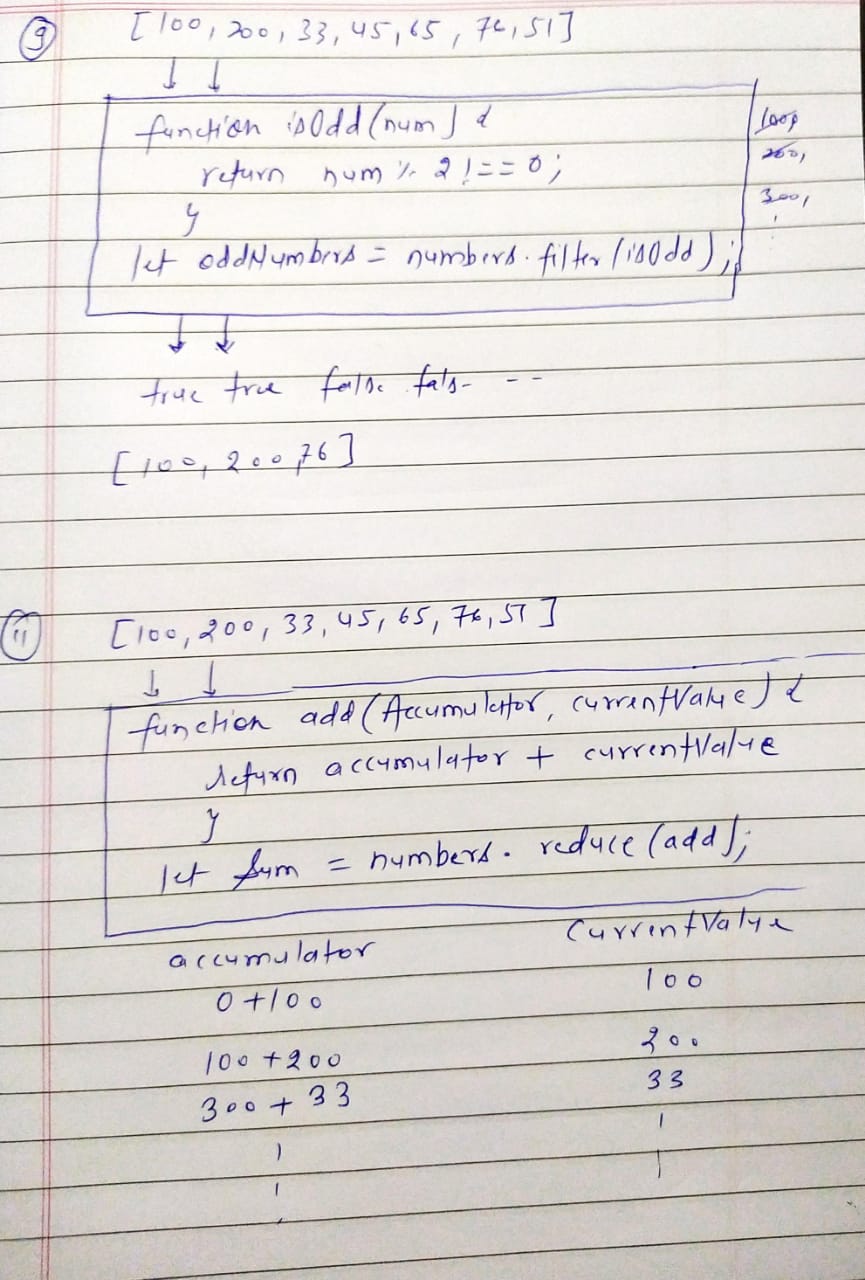 9
[100, 200, 33, 45, 65, 76, 51]
↓ ↓
function isOdd (num) {
return num % 2 !== 0;
}
let oddNumbers = numbers.filter (isOdd);
loop
200,
300,
↓ ↓
true true false fals- --
[100, 200, 76]
11
[100, 200, 33, 45, 65, 76, 51]
↓ ↓
function add (Accumulator, currentValue) {
return accumulator + currentValue
}
let sum = numbers. reduce (add);
accumulator currentValue
0 +100 100
100 +200 200
300 + 33 33